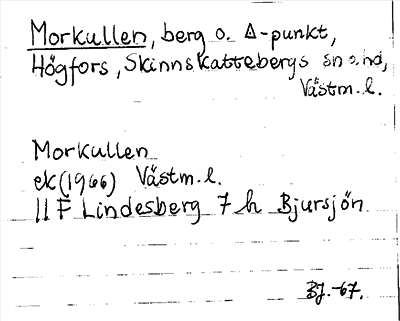 Morkullen, berg o. Δ-punkt,
Högfors, Skinnskattebergs sn o. hd,
Västm. l.
Morkullen
ek (1966) Västm. l.
11 F Lindesberg 7 h Bjursjön
BJ. -67.